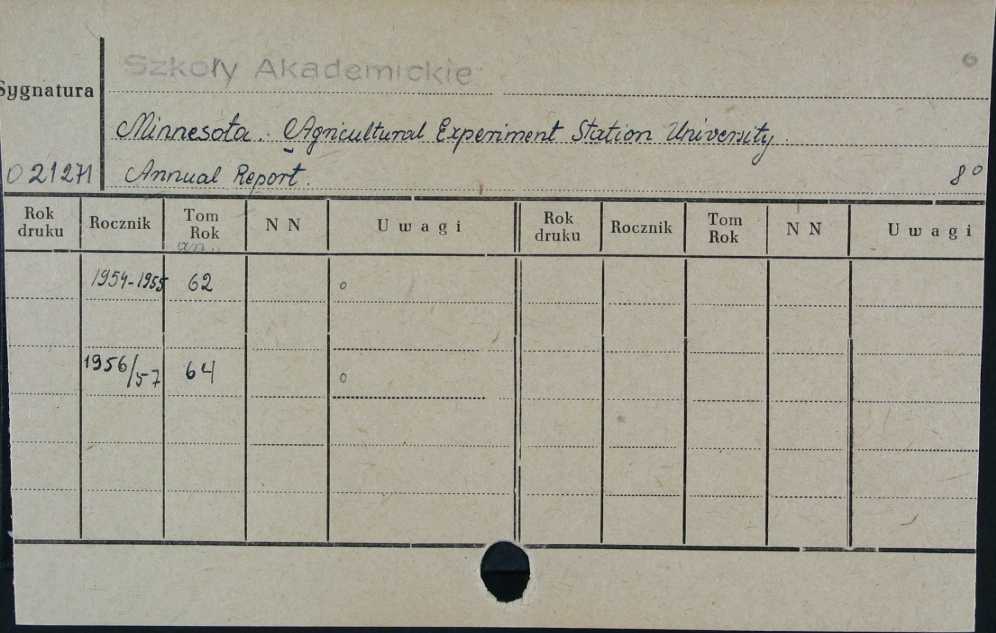 Szkoły Akademickie
Sygnatura
Minnesota. Agricultural Experiment Station University.
021271 Annual Report. 8°
Rok druku Rocznik Tom Rok NN Uwagi Rok druku Rocznik Tom Rok NN Uwagi
1954-1955 62 o
1956/57 64 o